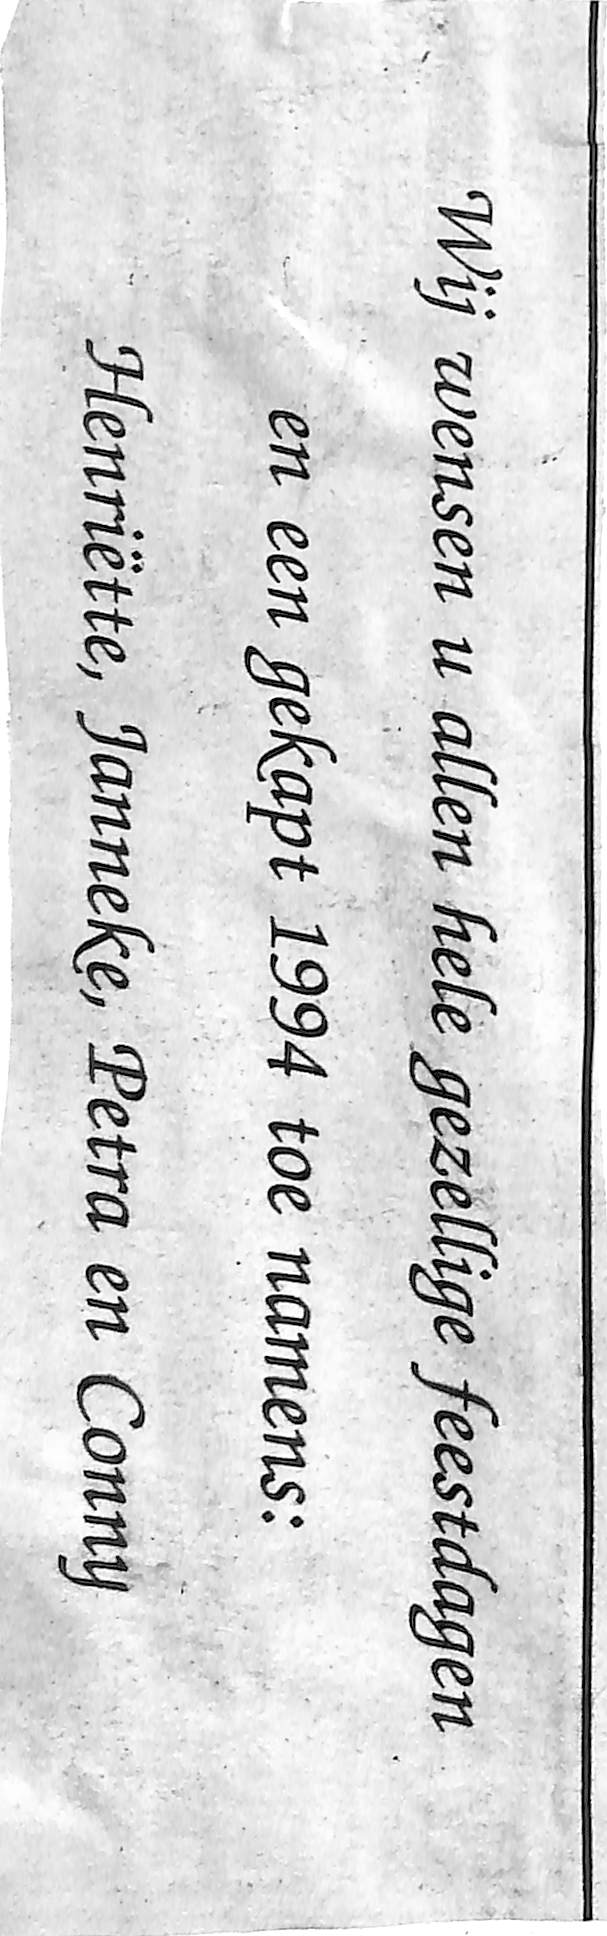 Wij wensen u allen hele gezellige feestdagen
en een gekapt 1994 toe namens:
Henriëtte, Janneke, Petra en Conny